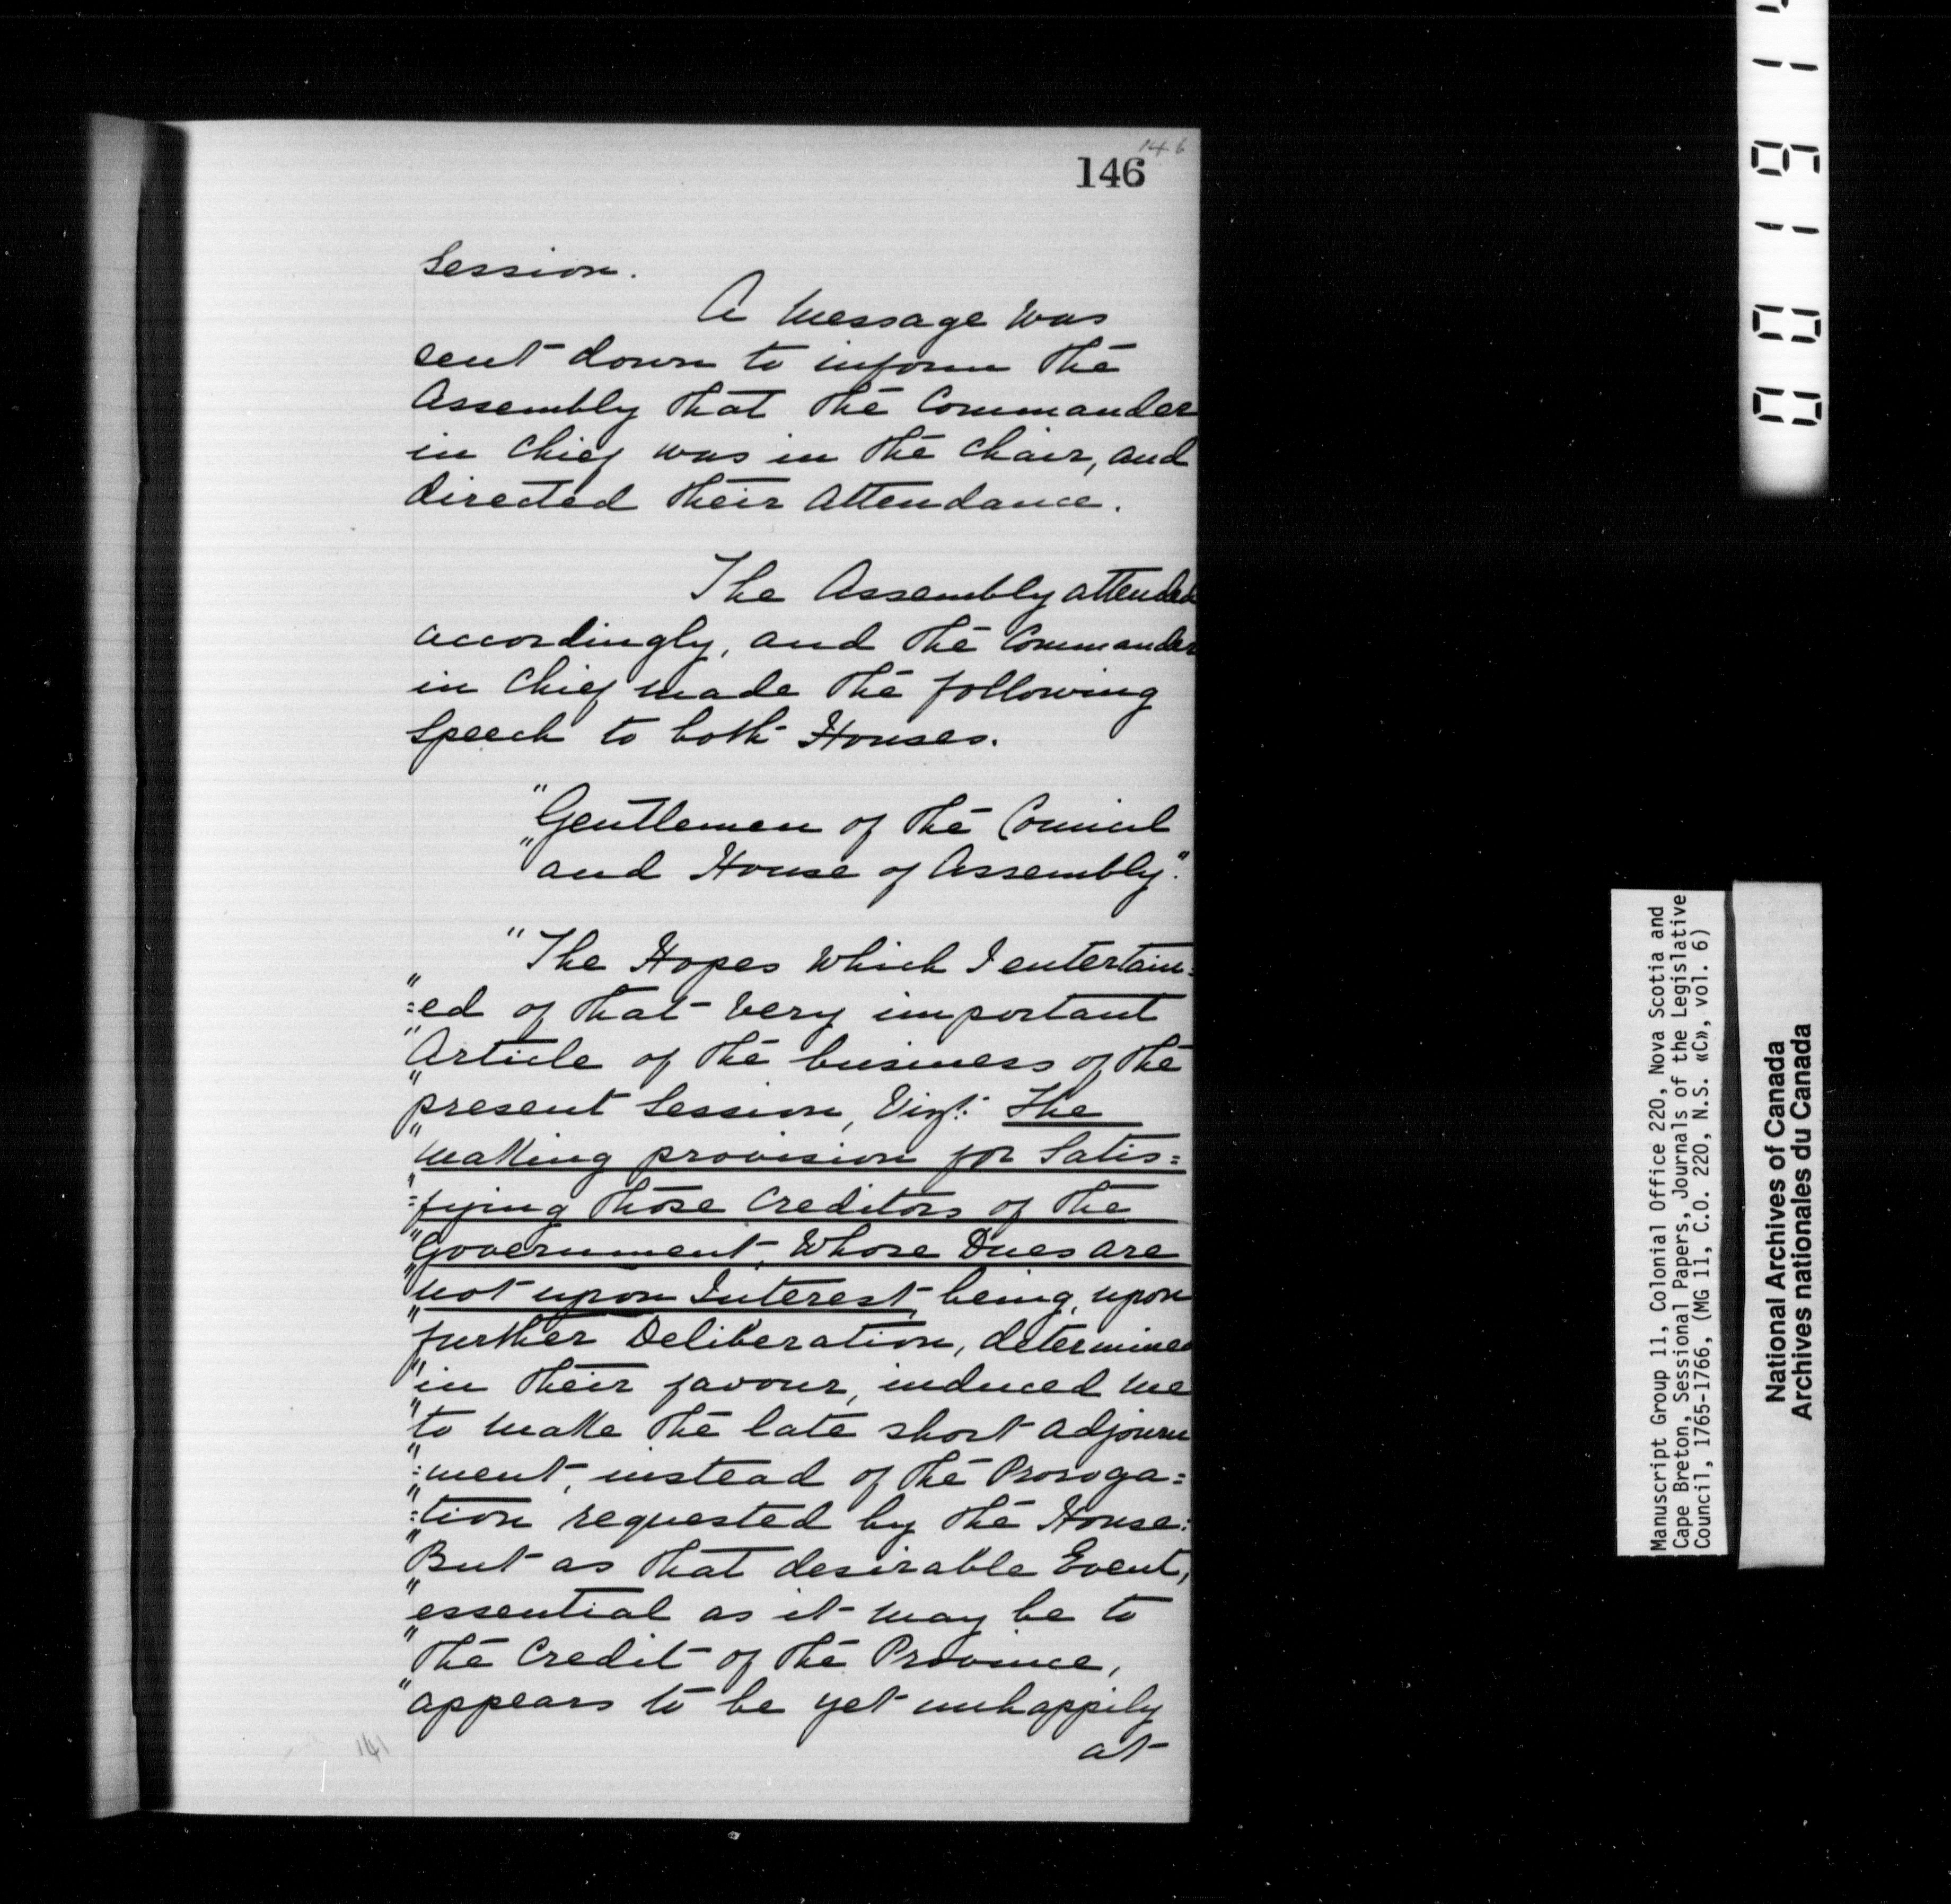 146
146
Session.
A Message was
sent down to inform the
Assembly that the Commander
in Chief was in the Chair, and
directed their Attendance.
The Assembly attended
accordingly, and the Commander
in Chief made the following
Speech to both Houses.
"Gentlemen of the Council
"and House of Assembly."
"The Hopes which I entertain=
"=ed of that very important
"Article of the business of the
"present Session, Vizt. The
"making provision for Satis=
"=fying those Creditors of the
"Government, Whose Dues are
"not upon Interest, being, upon
"further Deliberation, determined
"in their favour, induced me
"to make the late short adjourn
"=ment, instead of the Proroga=
"=tion requested by the House:
"But as that desirable Event,
"essential as it may be to
"the Credit of the Province,
"appears to be yet unhappily
at
141
Manuscript Group 11, Colonial Office 220, Nova Scotia and
Cape Breton, Sessional Papers, Journals of the Legislative
Council, 1765-1766. (MG 11, C.O. 220, N.S. «C», vol. 6)
National Archives of Canada
Archives nationales du Canada